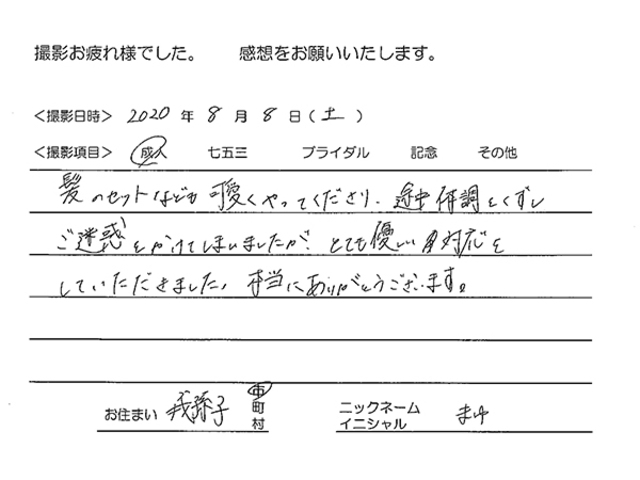 撮影お疲れ様でした。 感想をお願いいたします。
＜撮影日時＞ 2020 年 8 月 8 日（土）
＜撮影項目＞ 成人 七五三 ブライダル 記念 その他
髪のセットなども可愛くやってくださり、途中体調をくずし
ご迷惑をかけてしまいましたが、とても優しい対応を
していただきました、本当にありがとうございます。
お住まい 我孫子 市町村 ニックネーム イニシャル まゆ